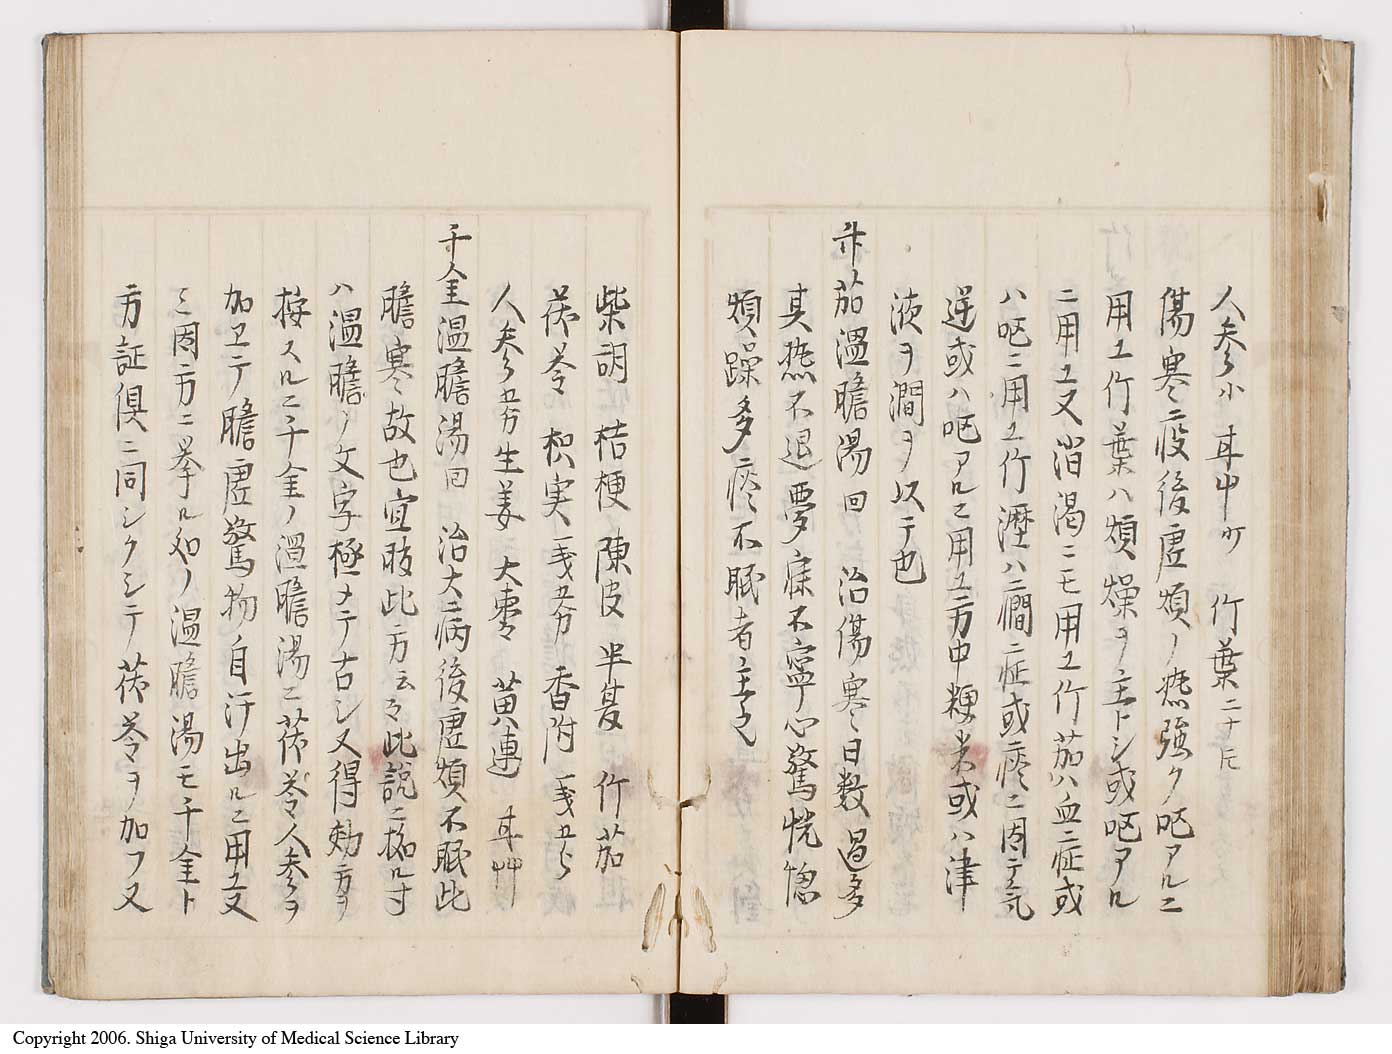 人参小 甘中少 竹葉二十片
傷寒疫後虚煩ノ𤍠強ク呕アルニ
用ユ竹葉ハ煩燥ヲ主トシ或呕アル
ニ用ユ又消渇ニモ用ユ竹茹ハ血症或
ハ呕ニ用ユ竹瀝ハ癇症或痰ニ因テ氣
逆或ハ呕アルニ用ユ方中粳米或ハ津
液ヲ澗ヲ以テ也
竹茹温膽湯回 治傷寒日数過多
其𤍠不退夢寐不寧心驚恍惚
煩躁多痰不眠者主之
柴胡 桔梗 陳皮 半夏 竹茹
茯苓 枳実 戔五分 香附 戔五分
人参五分 生姜 大棗 黄連 甘艸
千金温膽湯回 治大病後虚煩不眠此
膽寒故也宜服此方云々此説ニ拠ル寸
ハ温膽ノ文字極メテ古シ又得効方ヲ
按スルニ千金ノ温膽湯ニ茯苓人参ヲ
加ヱテ膽虚驚物自汗出ルニ用ユ又
三因方ニ挙ル処ノ温膽湯モ千金ト
方証倶ニ同シクシテ茯苓ヲ加フ又
Copyright 2006. Shiga University of Medical Science Library